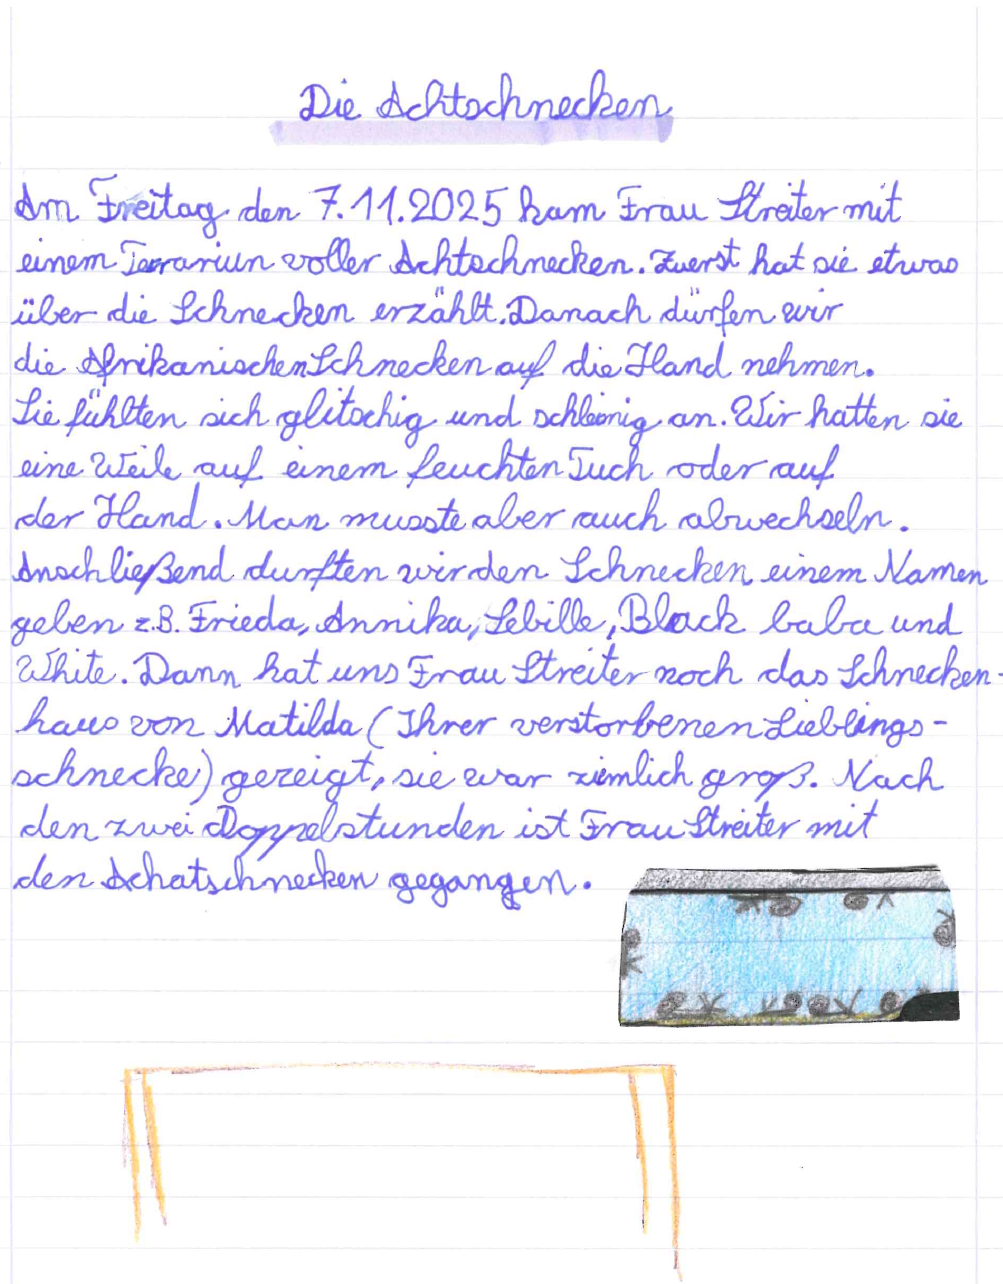 Die Achtschnecken
Am Freitag den 7.11.2025 kam Frau Streiter mit
einem Terrariun voller Achtschnecken. Zuerst hat sie etwas
über die Schnecken erzählt. Danach dürfen wir
die Afrikanischen Schnecken auf die Hand nehmen.
Sie fühlten sich glitschig und schleimig an. Wir hatten sie
eine Weile auf einem feuchten Tuch oder auf
der Hand. Man musste aber auch abwechseln.
Anschließend durften wir den Schnecken einem Namen
geben z.B. Frieda, Annika, Sebille, Black baba und
White. Dann hat uns Frau Streiter noch das Schnecken-
haus von Matilda (Ihrer verstorbenen Lieblings-
schnecke) gezeigt, sie war ziemlich groß. Nach
den zwei Doppelstunden ist Frau Streiter mit
den Achatschnecken gegangen.